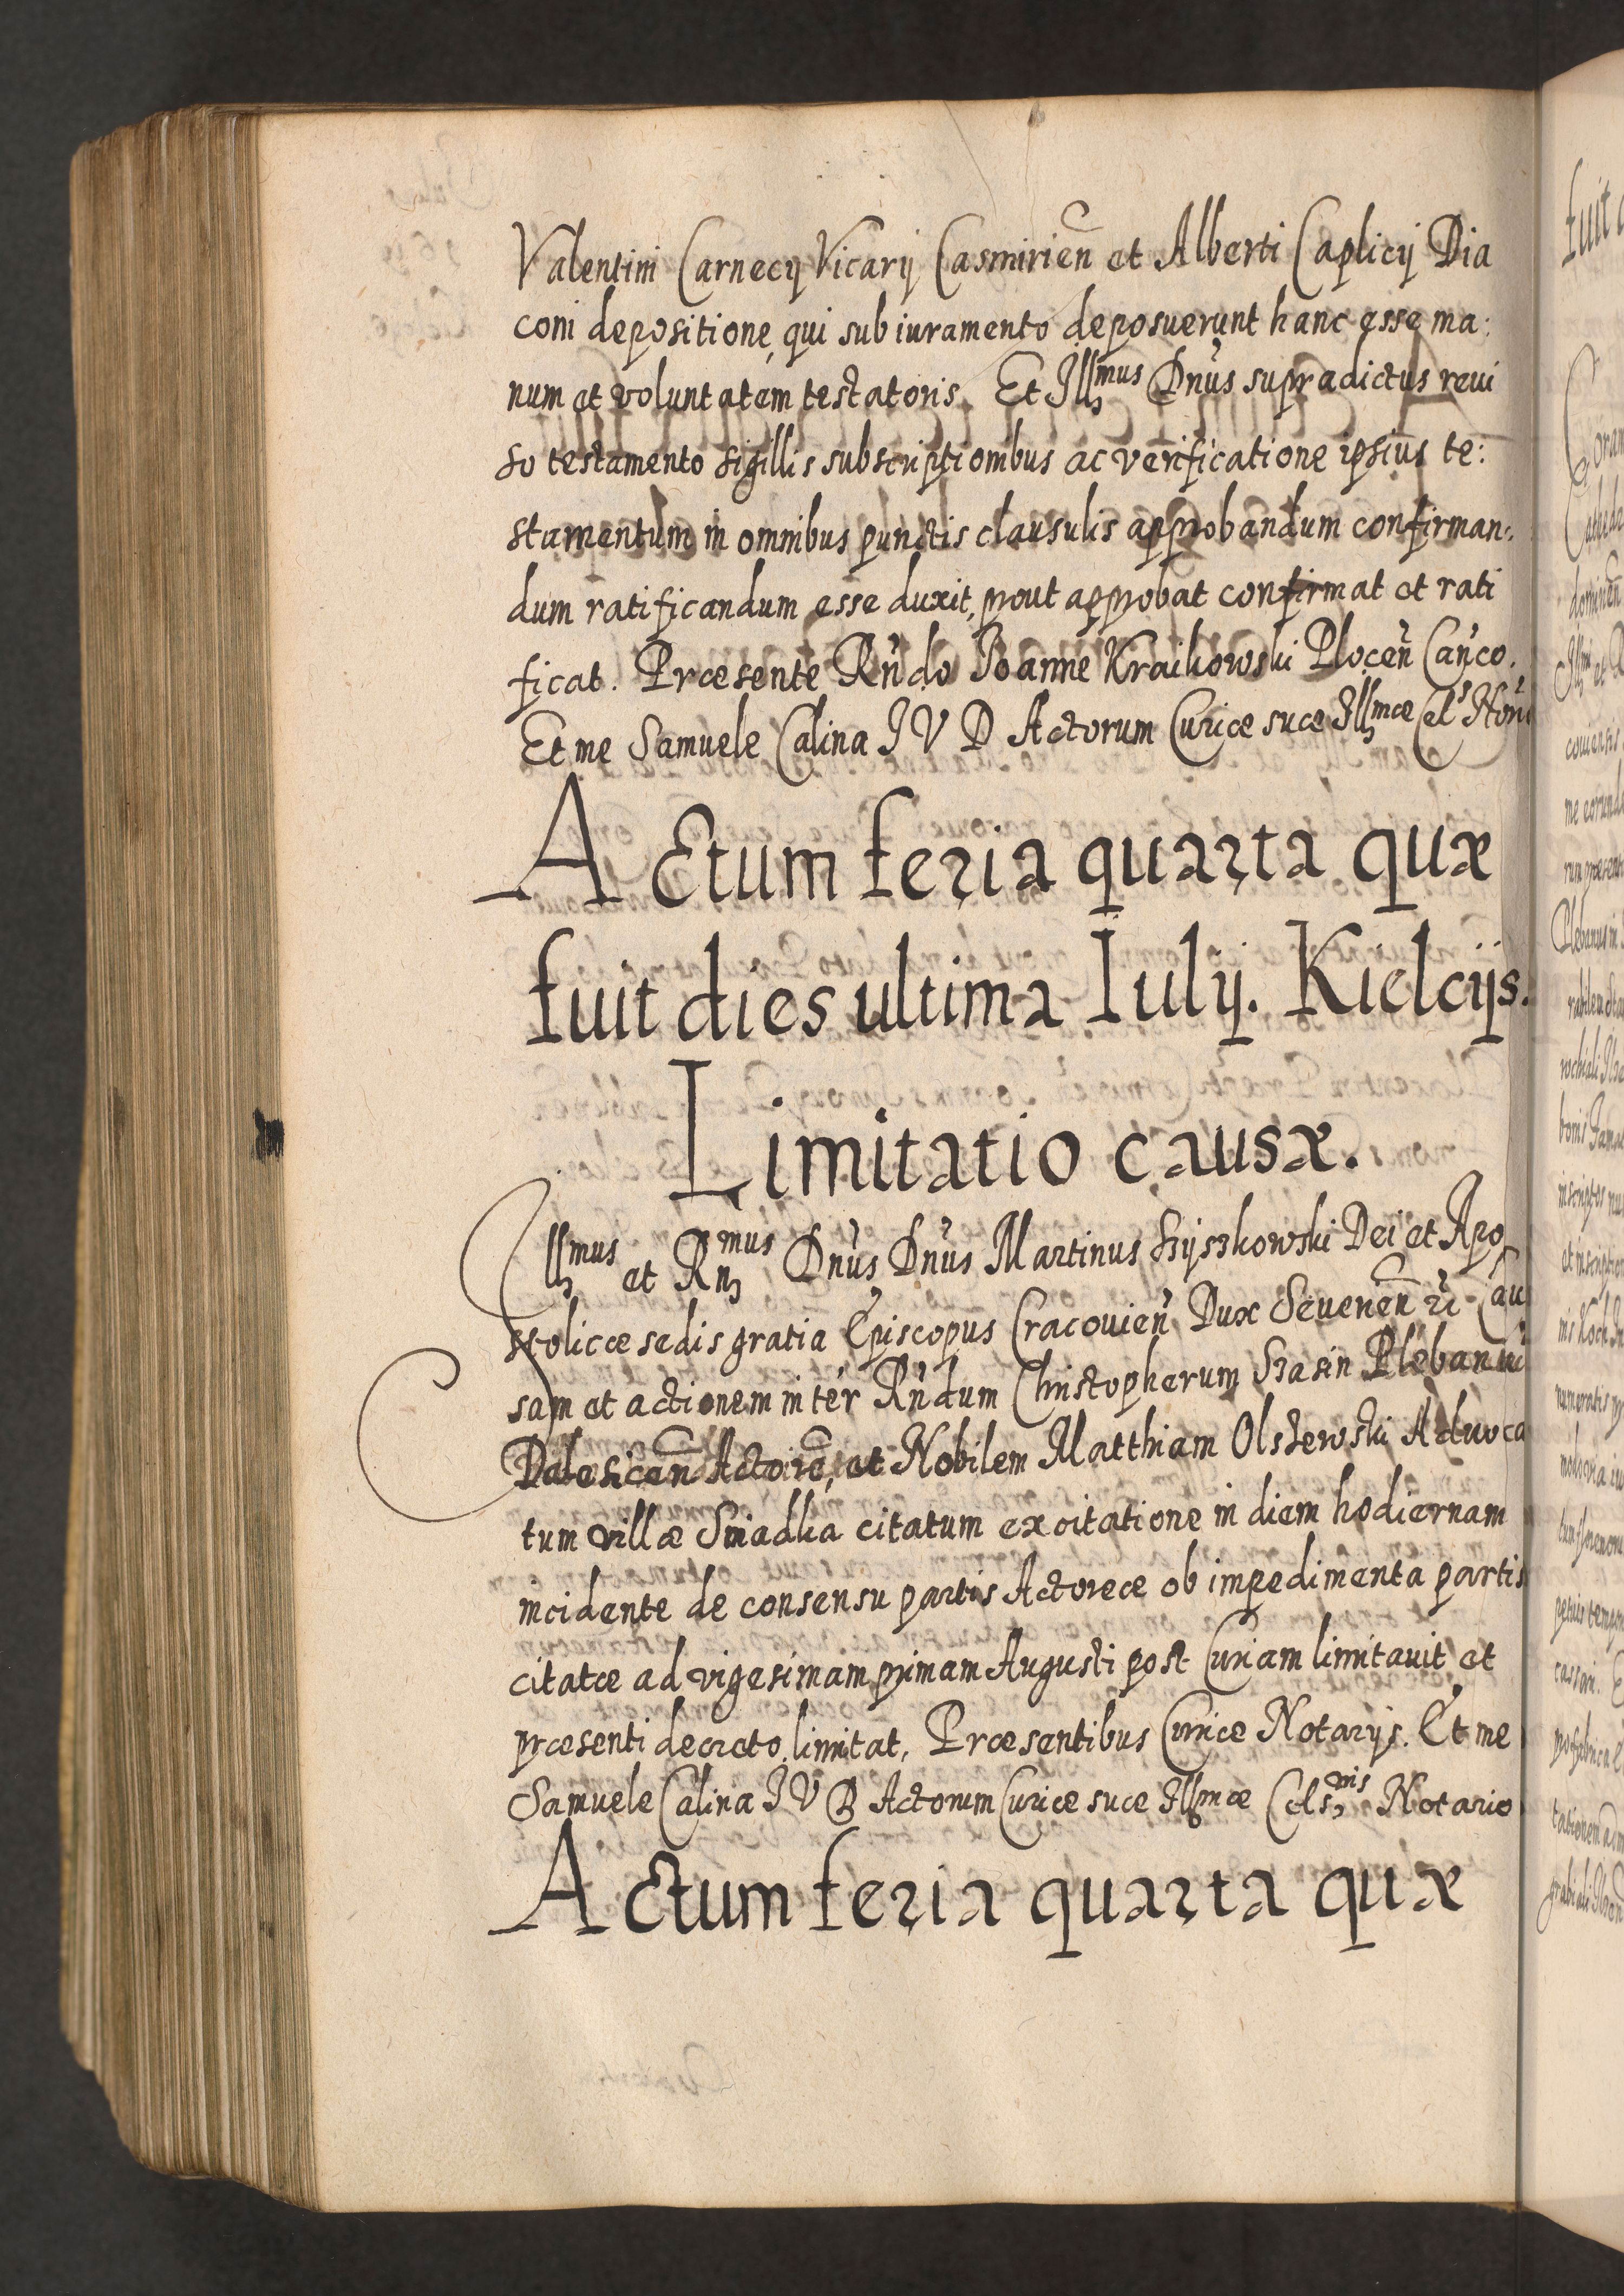 Valentini Carnecij Vicarij Casmirieñ et Alberti Caplicij Dia
coni depositione, qui sub iuramento deposuerunt hanc esse ma:
num et voluntatem testatoris. Et Illmus Dnus supradictus reui
so testamento sigillis subscriptionibus ac verificatione ipsius te:
stamentum in omnibus punctis clausulis approbandum confirman:
dum ratificandum esse duxit, prout approbat confirmat et rati
ficat. Præsente Rñdo Joanne Kraikowski Ploceñ Cañco.
Et me Samuele Calina J V D Actorum Curiæ suæ Illmæ Cels
Actum feria quarta quæ
fuit dies ultima Iulij. Kielcijs.
Limitatio causæ.
Illmus et Rnmus Dnus Dnus Martinus Szyszkowski Dei et Apo
stolicæ sedis gratia Episcopus Cracouień Dux Seuereñ &c Cau
sam et actionem inter Rñdum Christopherum Szasin Plebanū
Dalesziceñ Actorē, et Nobilem Matthiam Olszewski Aduoca
tum villæ Sniadka citatum ex citatione in diem hodiernam
incidente de consensu partis Actoreæ ob impedimenta partis
citatæ ad vigesimam primam Augusti post Curiam limitauit et
præsenti decreto limitat. Præsentibus Curiæ Notarijs. Et me
Samuele Calina J V D Actorum Curiæ suæ Illmæ Celsnis Notario
Actum feria quarta quæ